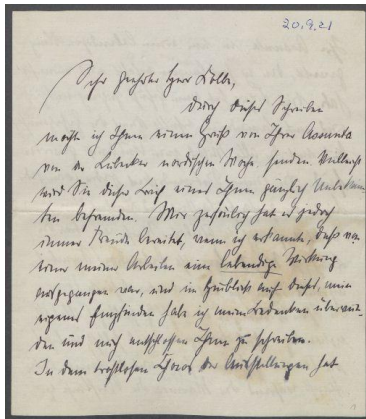 20.9.21
Sehr geehrter Herr Kolbe,
Durch dieses Schreiben
möchte ich Ihnen einen Gruß von Ihrer Assunta
von der Lübecker nordischen Woche senden. Vielleicht
wird Sie dieser Brief eines Ihnen gänzlich Unbekann
ten befremden. Mir persönlich hat es jedoch
immer Freude bereitet, wenn ich erkannte, daß von
einer meiner Arbeiten eine lebendige Wirkung
ausgegangen war, und im Hinblick auf dieses, mein
eigenes Empfinden habe ich meine Bedenken überwun
den und mich entschlossen Ihnen zu schreiben.
In dem trostlosen Chaos der Ausstellungen hat